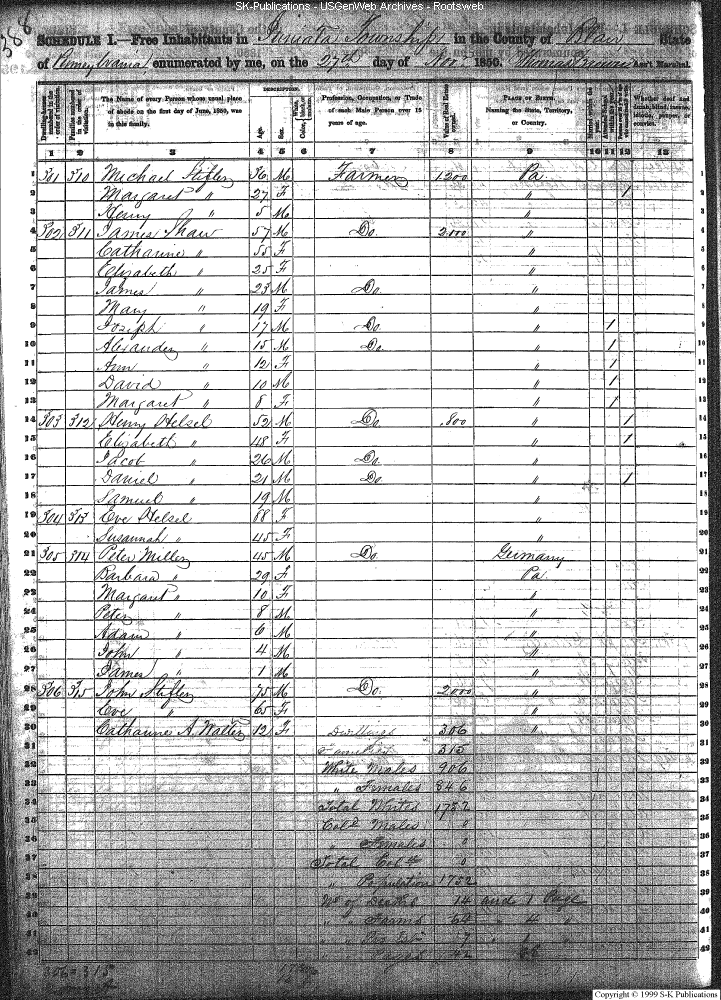 SK-Publications - USGenWeb Archives - Rootsweb
388
SCHEDULE I.—Free Inhabitants in Juniata Township in the County of Blair State
of Pennsylvania enumerated by me, on the 27th day of Nov. 1850. Thomas Ass't Marshal.
Dwelling-houses numbered in the order of visitation.
Families numbered in the order of visitation.
The Name of every Person whose usual place of abode on the first day of June, 1850, was in this family.
DESCRIPTION.
Age.
Sex.
White, black, or mulatto.
Profession, Occupation, or Trade of each Male Person over 15 years of age.
Value of Real Estate owned.
PLACE OF BIRTH Naming the State, Territory, or Country.
Married within the year.
Whether deaf and dumb, blind, insane, idiotic, pauper, or convict.
1 2 3 4 5 6 7 8 9 10 11 12 13
1 301 310 Michael Stifler 36 M Farmer 1200 Pa 1
2 Margaret " 27 F " 1 2
3 Henry " 5 M " 3
4 302 311 James Shaw 57 M Do. 2000 " 4
5 Catharine " 55 F " 5
6 Elizabeth " 25 F " 6
7 James " 23 M Do. " 7
8 Mary " 19 F " 8
9 Joseph " 17 M Do. " 1 9
10 Alexander " 15 M Do. " 1 10
11 Ann " 12 F " 1 11
12 David " 10 M " 1 12
13 Margaret " 8 F " 1 13
14 303 312 Henry Helsel 52 M Do. 800 " 1 14
15 Elizabeth " 48 F " 1 15
16 Jacob " 26 M Do. " 16
17 Daniel " 21 M Do. " 1 17
18 Samuel " 19 M " 18
19 304 313 Eve Helsel 88 F " 19
20 Susannah " 45 F " 20
21 305 314 Peter Miller 45 M Do. Germany 21
22 Barbara " 29 F Pa 22
23 Margaret " 10 F " 23
24 Peter " 8 M " 24
25 Adam " 6 M " 25
26 John " 4 M " 26
27 James " 1 M " 27
28 306 315 John Stifler 75 M Do. 2000 " 28
29 Eve " 65 F " 29
30 Catharine A. Walter 12 F Dwellings 306 " 30
31 Families 315
32 White Males 906
33 " Females 846
34 Total Whites 1752
35 Cold Males 0
36 " Females 0
37 Total Cold 0
38 " Population 1752
39 No of Deaths 14 and 1 Page
40 " " Farms 64 " 4 "
41 " " 7 " 1 "
42 " Pages 42
306 = 315
Copyright © 1999 S-K Publications